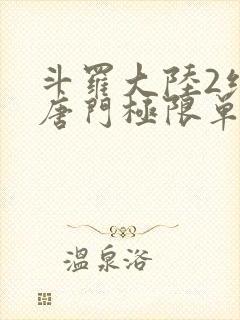 斗羅大陸2絕
唐門極限單
溫泉浴